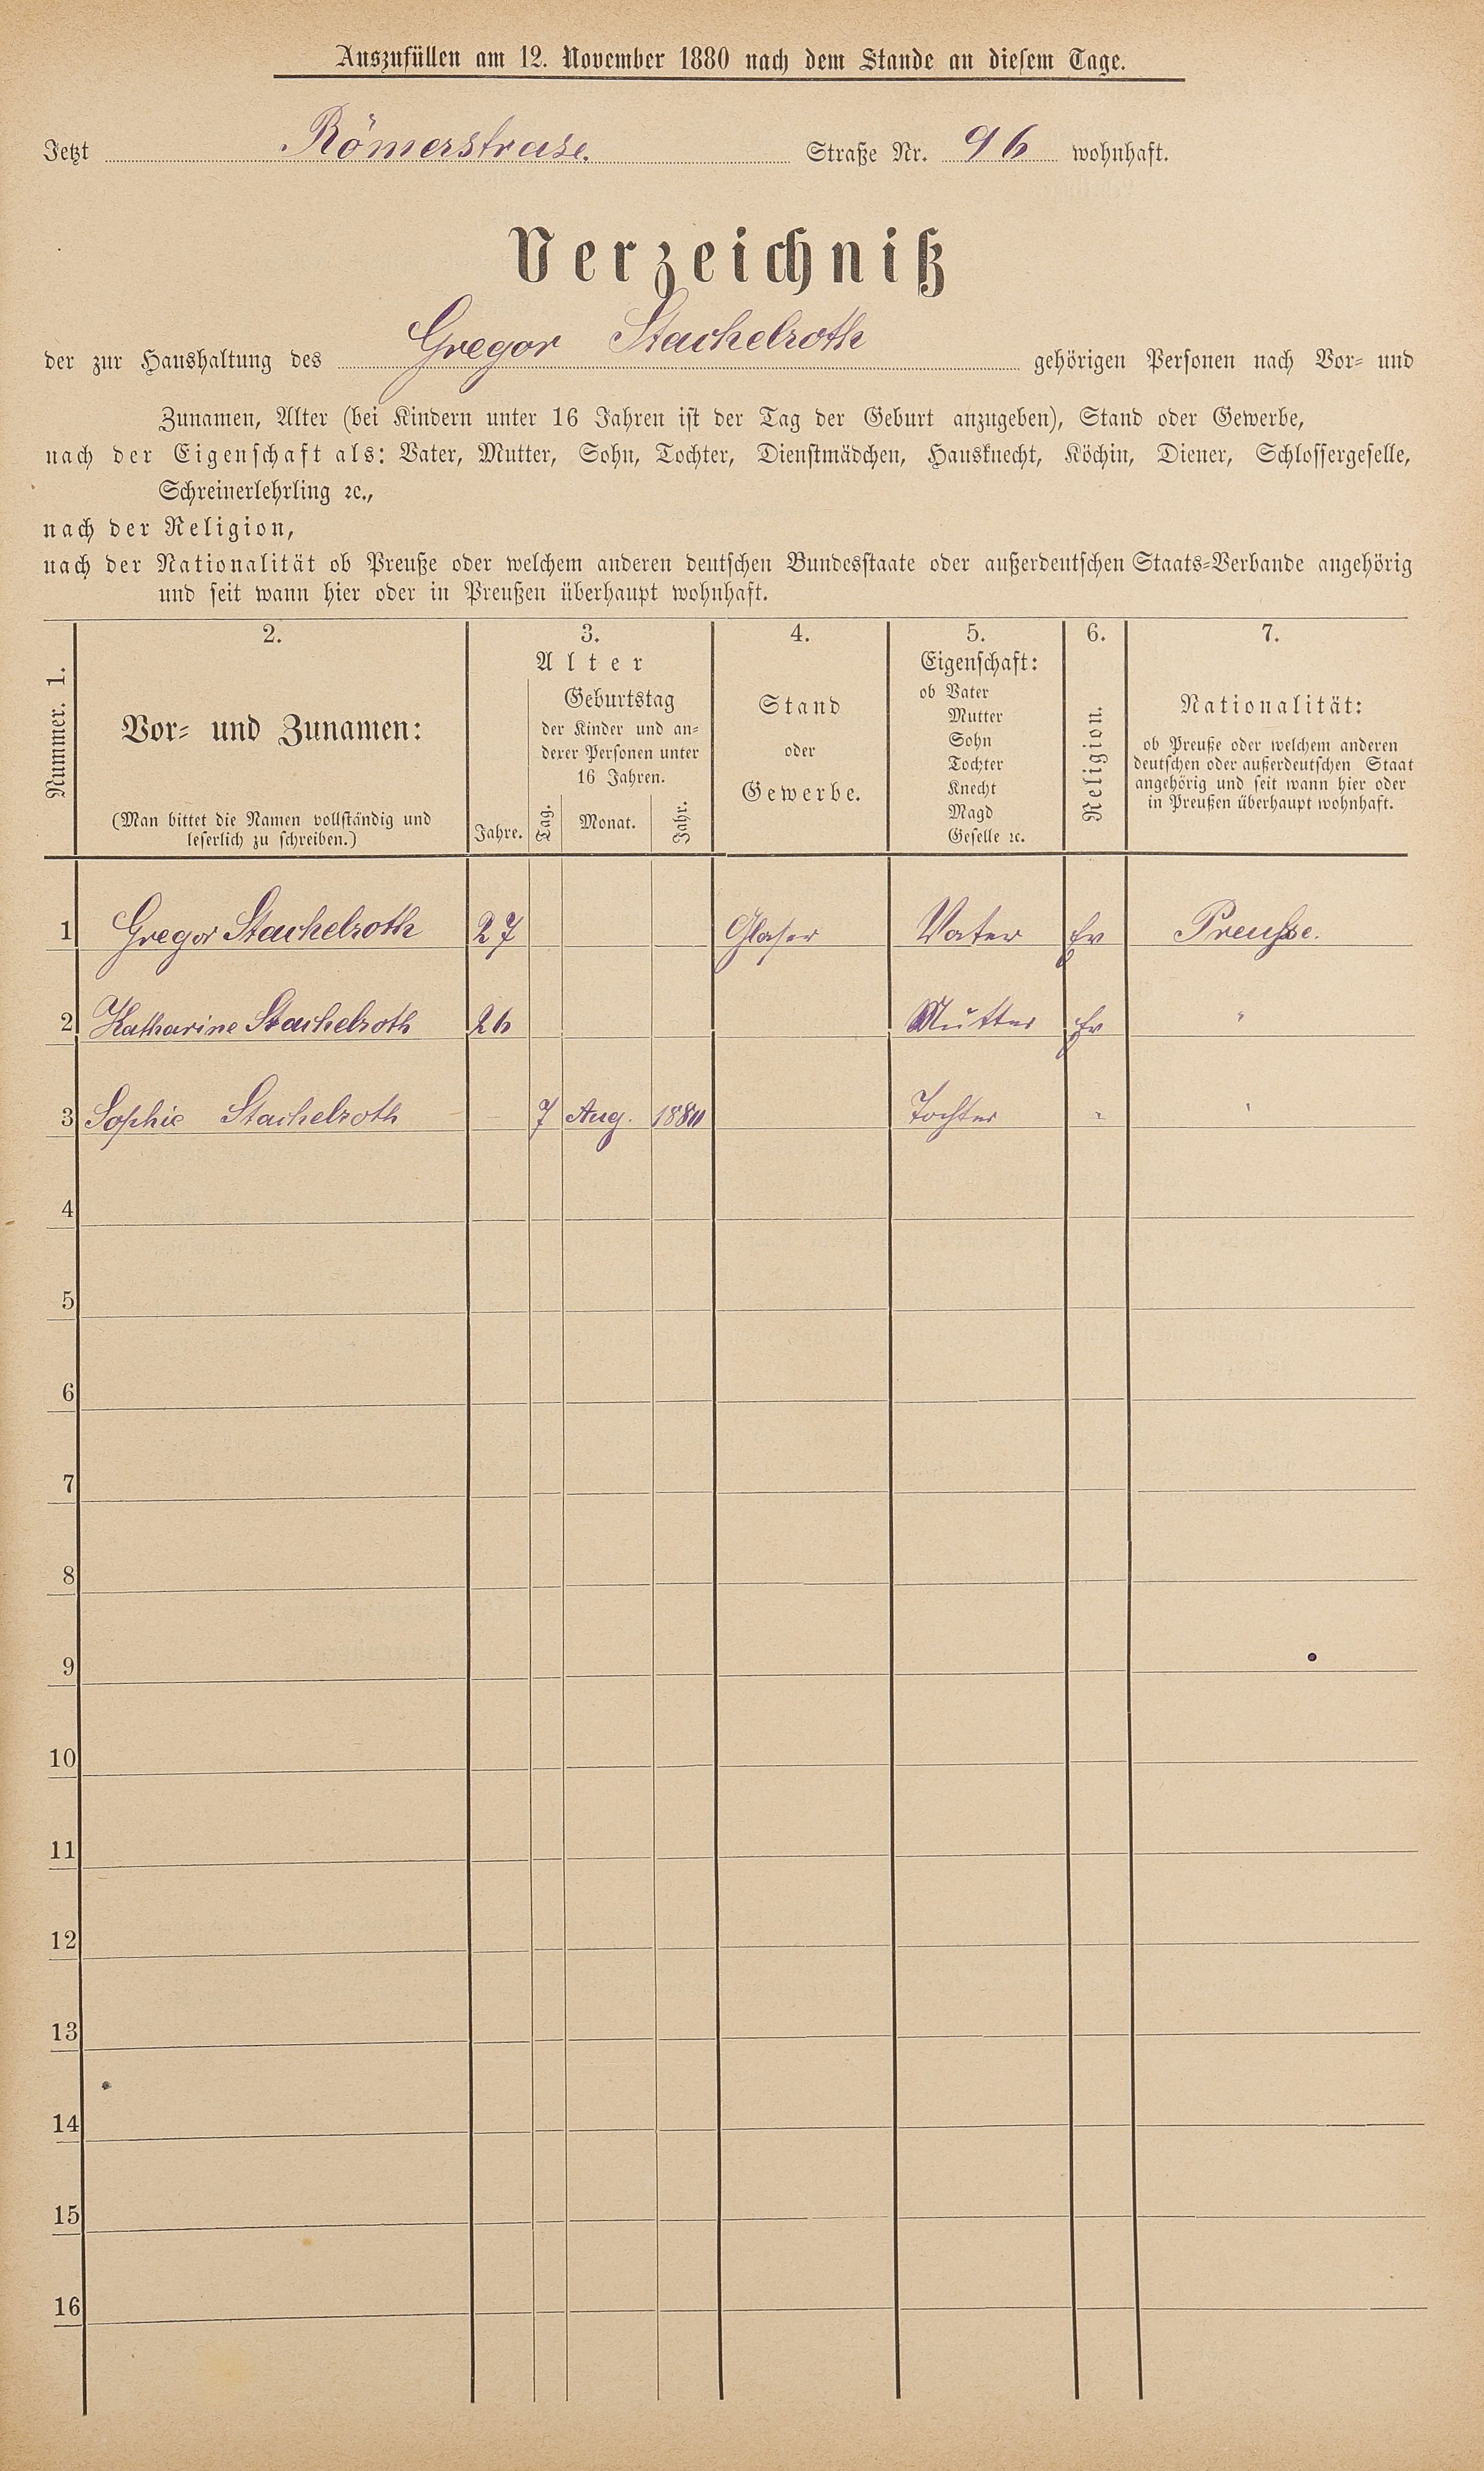 Auszufüllen am 12. November 1880 nach dem Stande an diesem Tage.
Jetzt Römerstrase. Straße Nr. 96 wohnhaft.
Verzeichniß
der zur Haushaltung des Gregor Stachelroth gehörigen Personen nach Vor- und
Zunamen, Alter (bei Kindern unter 16 Jahren ist der Tag der Geburt anzugeben), Stand oder Gewerbe,
nach der Eigenschaft als: Vater, Mutter, Sohn, Tochter, Dienstmädchen, Hausknecht, Köchin, Diener, Schlossergeselle,
Schreinerlehrling ꝛc.,
nach der Religion,
nach der Nationalität ob Preuße oder welchem anderen deutschen Bundesstaate oder außerdeutschen Staats-Verbande angehörig
und seit wann hier oder in Preußen überhaupt wohnhaft.
Nummer. 1.
2.
Vor- und Zunamen:
(Man bittet die Namen vollständig und
leserlich zu schreiben.)
3.
Alter
Jahre.
Geburtstag
der Kinder und an-
derer Personen unter
16 Jahren.
Tag. Monat. Jahr.
4.
Stand
oder
Gewerbe.
5.
Eigenschaft:
ob Vater
Mutter
Sohn
Tochter
Knecht
Magd
Geselle ꝛc.
6.
Religion.
7.
Nationalität:
ob Preuße oder welchem anderen
deutschen oder außerdeutschen Staat
angehörig und seit wann hier oder
in Preußen überhaupt wohnhaft.
1 Gregor Stachelroth 27 Glaser Vater Ev Preußse.
2 Katharine Stachelroth 26 Mutter Ev "
3 Sophie Stachelroth — 7 Aug. 1880 Tochter " "
4
5
6
7
8
9
10
11
12
13
14
15
16